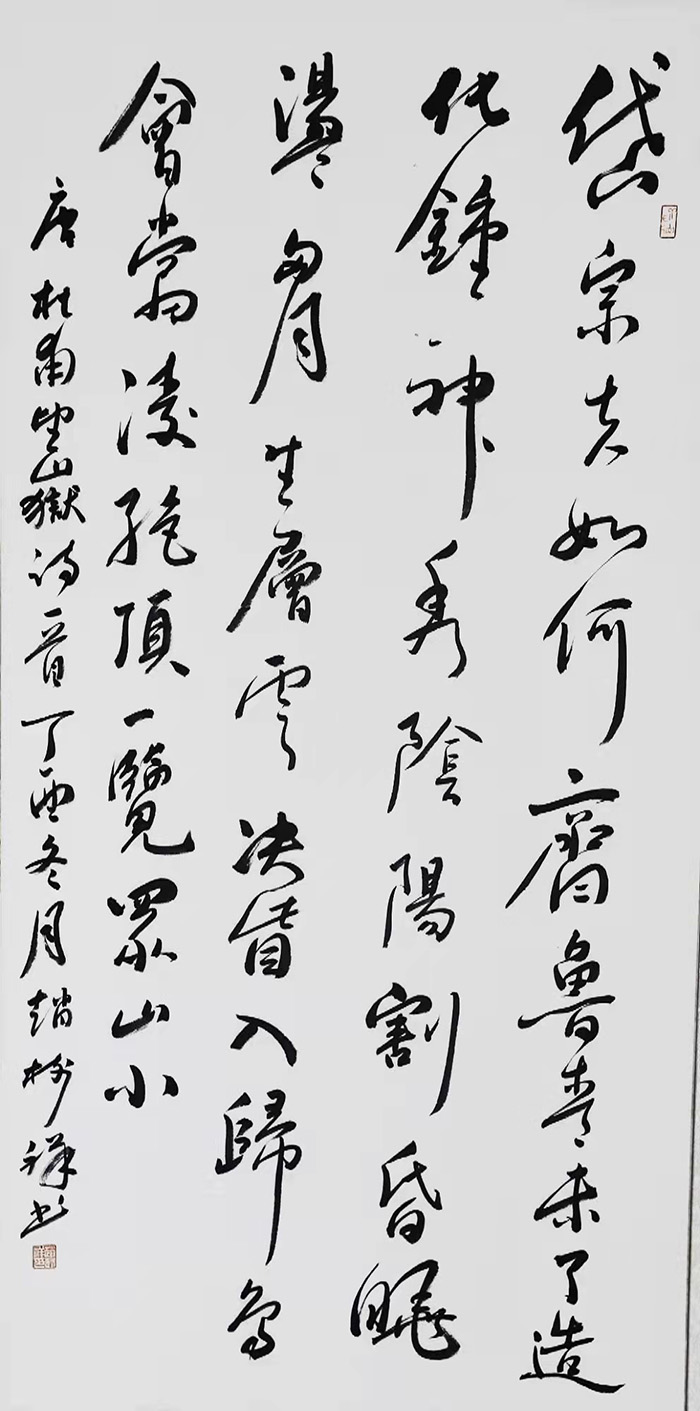 岱宗夫如何齊魯青未了造
化鍾神秀陰陽割昏曉
盪胷生層雲決眥入歸鳥
會當淩絕頂一覽眾山小
唐杜甫望嶽詩一首丁酉冬月趙樹祥書